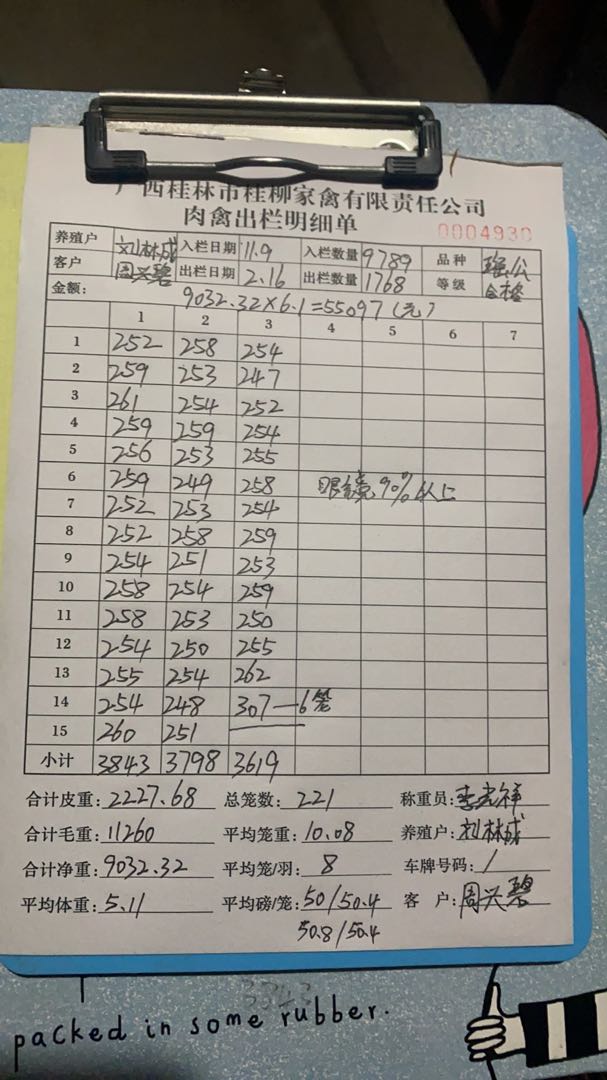 广西桂林市桂柳家禽有限责任公司
肉禽出栏明细单
0004930
养殖户 刘林成 入栏日期 11.9 入栏数量 9789 品种 瑶公
客户 周兴碧 出栏日期 2.16 出栏数量 1768 等级 合格
金额: 9032.32×6.1=55097(元)
1 2 3 4 5 6 7
1 252 258 254
2 259 253 247
3 261 254 252
4 259 259 254
5 256 253 255
6 259 249 258 眼镜90%以上
7 252 253 254
8 252 258 259
9 254 251 253
10 258 254 259
11 258 253 250
12 254 250 255
13 255 254 262
14 254 248 307—6笼
15 260 251
小计 3843 3798 3619
合计皮重: 2227.68 总笼数: 221 称重员: 李光祥
合计毛重: 11260 平均笼重: 10.08 养殖户: 刘林成
合计净重: 9032.32 平均笼/羽: 8 车牌号码: /
平均体重: 5.11 平均磅/笼: 50/50.4 客户: 周兴碧
50.8/50.4
packed in some rubber.